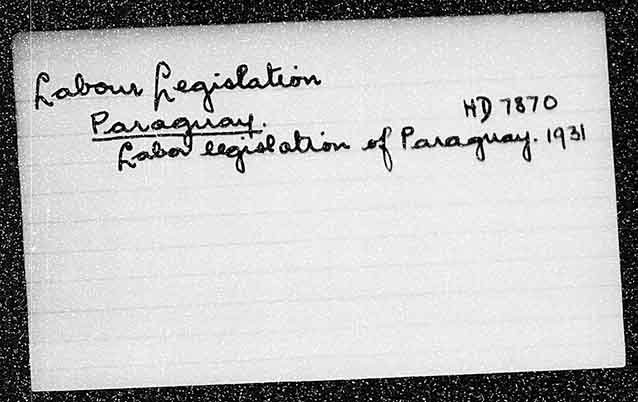 Labour Legislation
Paraguay.
HD 7870
Labor legislation of Paraguay. 1931